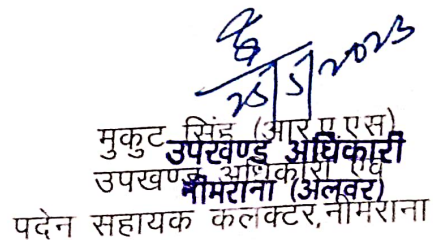 25/5/2023
मुकुट सिंह (आर.ए.एस)
उपखण्ड अधिकारी
उपखण्ड अधिकारी एवं
नीमराना (अलवर)
पदेन सहायक कलक्टर,नीमराना